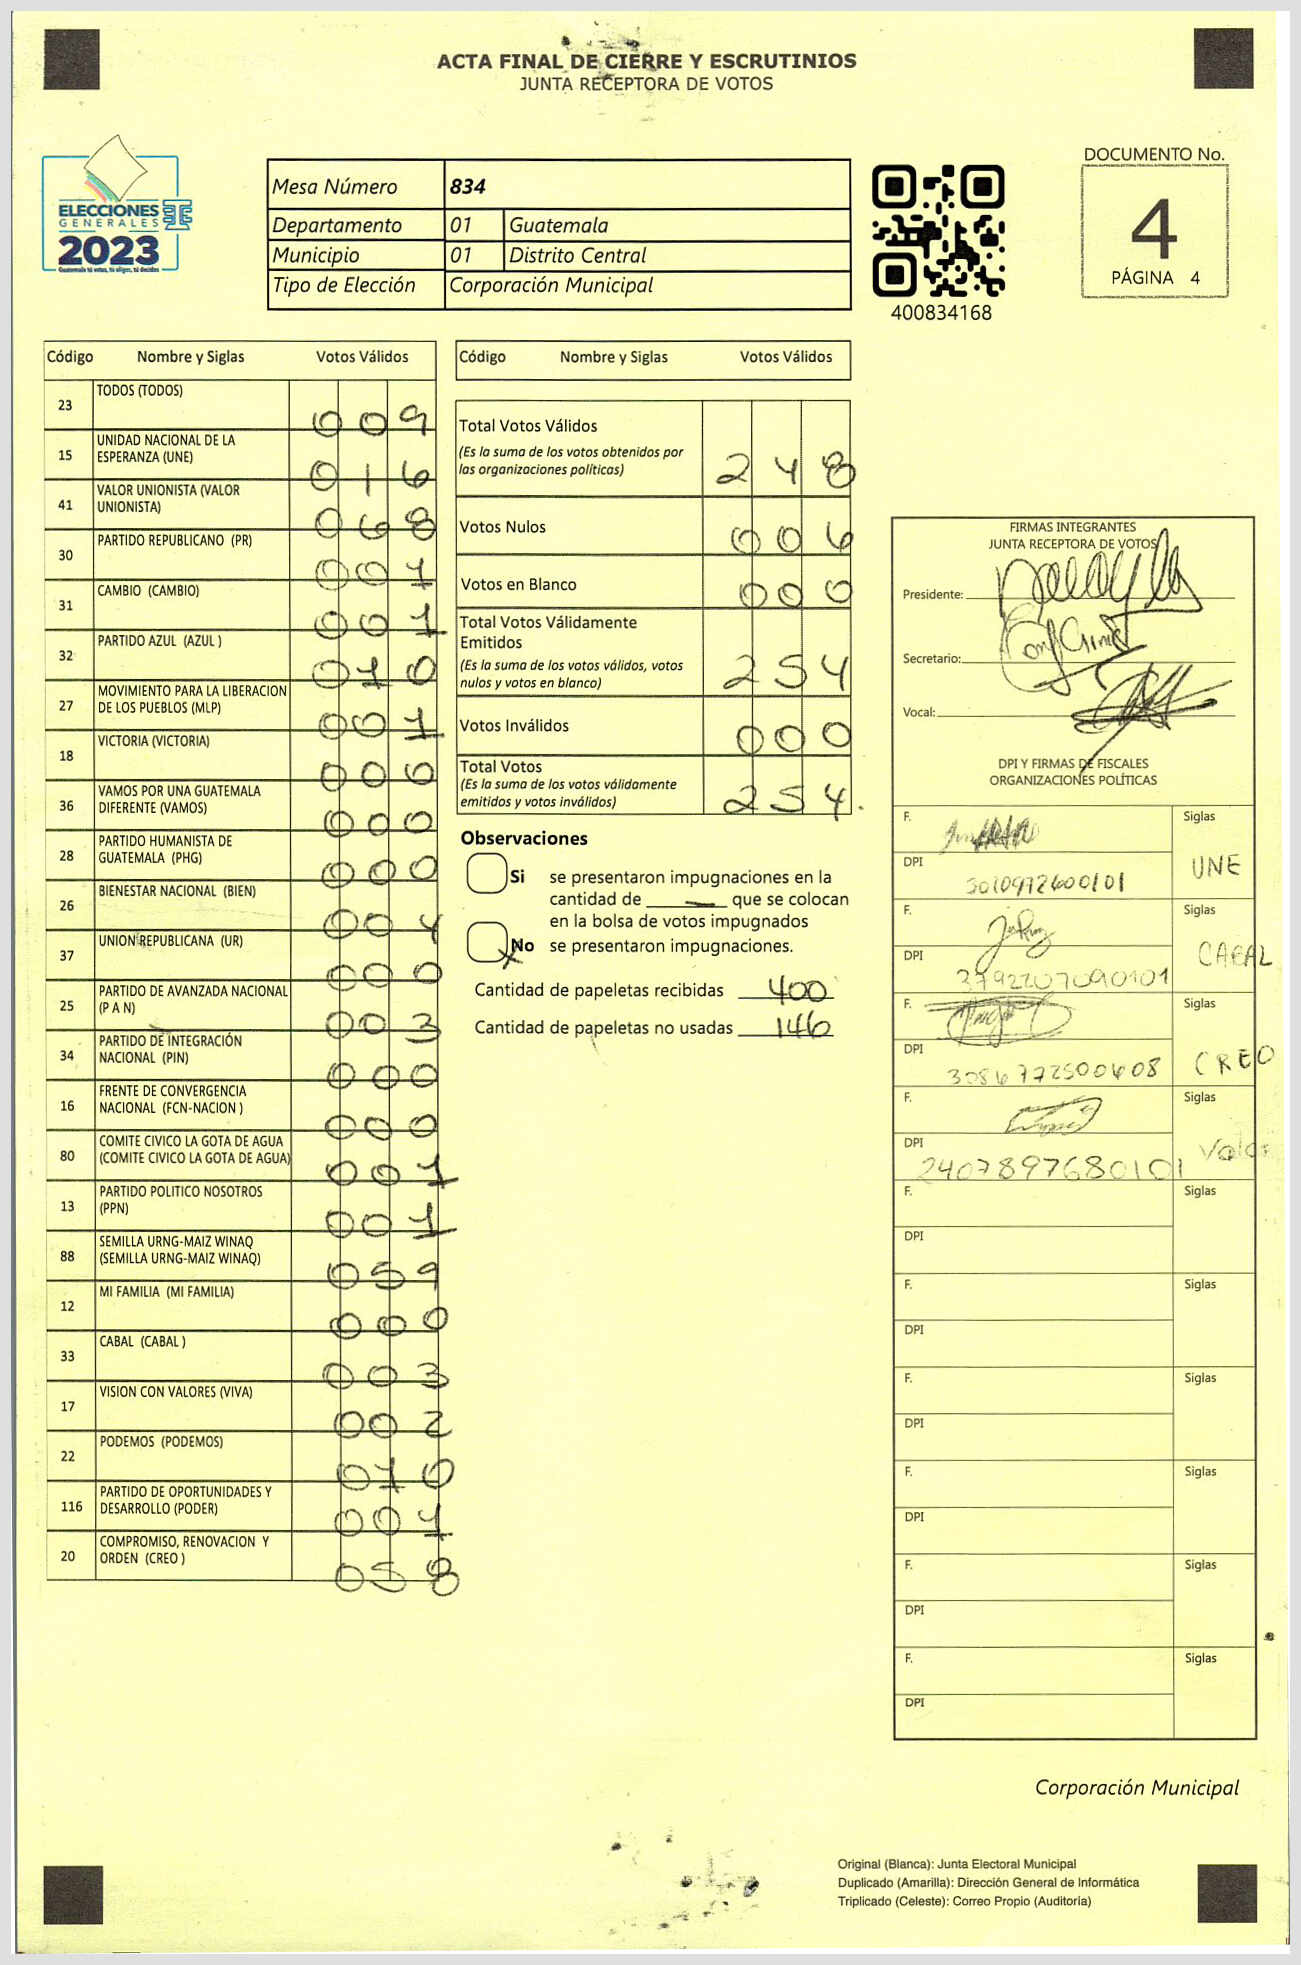 ACTA FINAL DE CIERRE Y ESCRUTINIOS
JUNTA RECEPTORA DE VOTOS
ELECCIONES
GENERALES
2023
Guatemala tú votas, tú eliges, tú decides
Mesa Número 834
Departamento 01 Guatemala
Municipio 01 Distrito Central
Tipo de Elección Corporación Municipal
400834168
DOCUMENTO No.
4
PÁGINA 4
Código Nombre y Siglas Votos Válidos
23 TODOS (TODOS) 009
15 UNIDAD NACIONAL DE LA ESPERANZA (UNE) 016
41 VALOR UNIONISTA (VALOR UNIONISTA) 068
30 PARTIDO REPUBLICANO (PR) 001
31 CAMBIO (CAMBIO) 001
32 PARTIDO AZUL (AZUL ) 010
27 MOVIMIENTO PARA LA LIBERACION DE LOS PUEBLOS (MLP) 001
18 VICTORIA (VICTORIA) 000
36 VAMOS POR UNA GUATEMALA DIFERENTE (VAMOS) 000
28 PARTIDO HUMANISTA DE GUATEMALA (PHG) 000
26 BIENESTAR NACIONAL (BIEN) 004
37 UNION REPUBLICANA (UR) 000
25 PARTIDO DE AVANZADA NACIONAL (P A N) 003
34 PARTIDO DE INTEGRACIÓN NACIONAL (PIN) 000
16 FRENTE DE CONVERGENCIA NACIONAL (FCN-NACION ) 000
80 COMITE CIVICO LA GOTA DE AGUA (COMITE CIVICO LA GOTA DE AGUA) 001
13 PARTIDO POLITICO NOSOTROS (PPN) 001
88 SEMILLA URNG-MAIZ WINAQ (SEMILLA URNG-MAIZ WINAQ) 059
12 MI FAMILIA (MI FAMILIA) 000
33 CABAL (CABAL ) 003
17 VISION CON VALORES (VIVA) 002
22 PODEMOS (PODEMOS) 010
116 PARTIDO DE OPORTUNIDADES Y DESARROLLO (PODER) 001
20 COMPROMISO, RENOVACION Y ORDEN (CREO ) 058
Código Nombre y Siglas Votos Válidos
Total Votos Válidos 248
(Es la suma de los votos obtenidos por
las organizaciones políticas)
Votos Nulos 006
Votos en Blanco 000
Total Votos Válidamente
Emitidos 254
(Es la suma de los votos válidos, votos
nulos y votos en blanco)
Votos Inválidos 000
Total Votos 254.
(Es la suma de los votos válidamente
emitidos y votos inválidos)
Observaciones
Si se presentaron impugnaciones en la
cantidad de — que se colocan
en la bolsa de votos impugnados
No se presentaron impugnaciones.
Cantidad de papeletas recibidas 400
Cantidad de papeletas no usadas 146
FIRMAS INTEGRANTES
JUNTA RECEPTORA DE VOTOS
Presidente:
Secretario:
Vocal:
DPI Y FIRMAS DE FISCALES
ORGANIZACIONES POLÍTICAS
F. Siglas
DPI 3010972600101 UNE
F. Siglas
DPI 3792207090101 CABAL
F. Siglas
DPI 3086772500608 CREO
F. Siglas
DPI 2407897680101 Valor
F. Siglas
DPI
F. Siglas
DPI
F. Siglas
DPI
F. Siglas
DPI
F. Siglas
DPI
F. Siglas
DPI
Corporación Municipal
Original (Blanca): Junta Electoral Municipal
Duplicado (Amarilla): Dirección General de Informática
Triplicado (Celeste): Correo Propio (Auditoría)